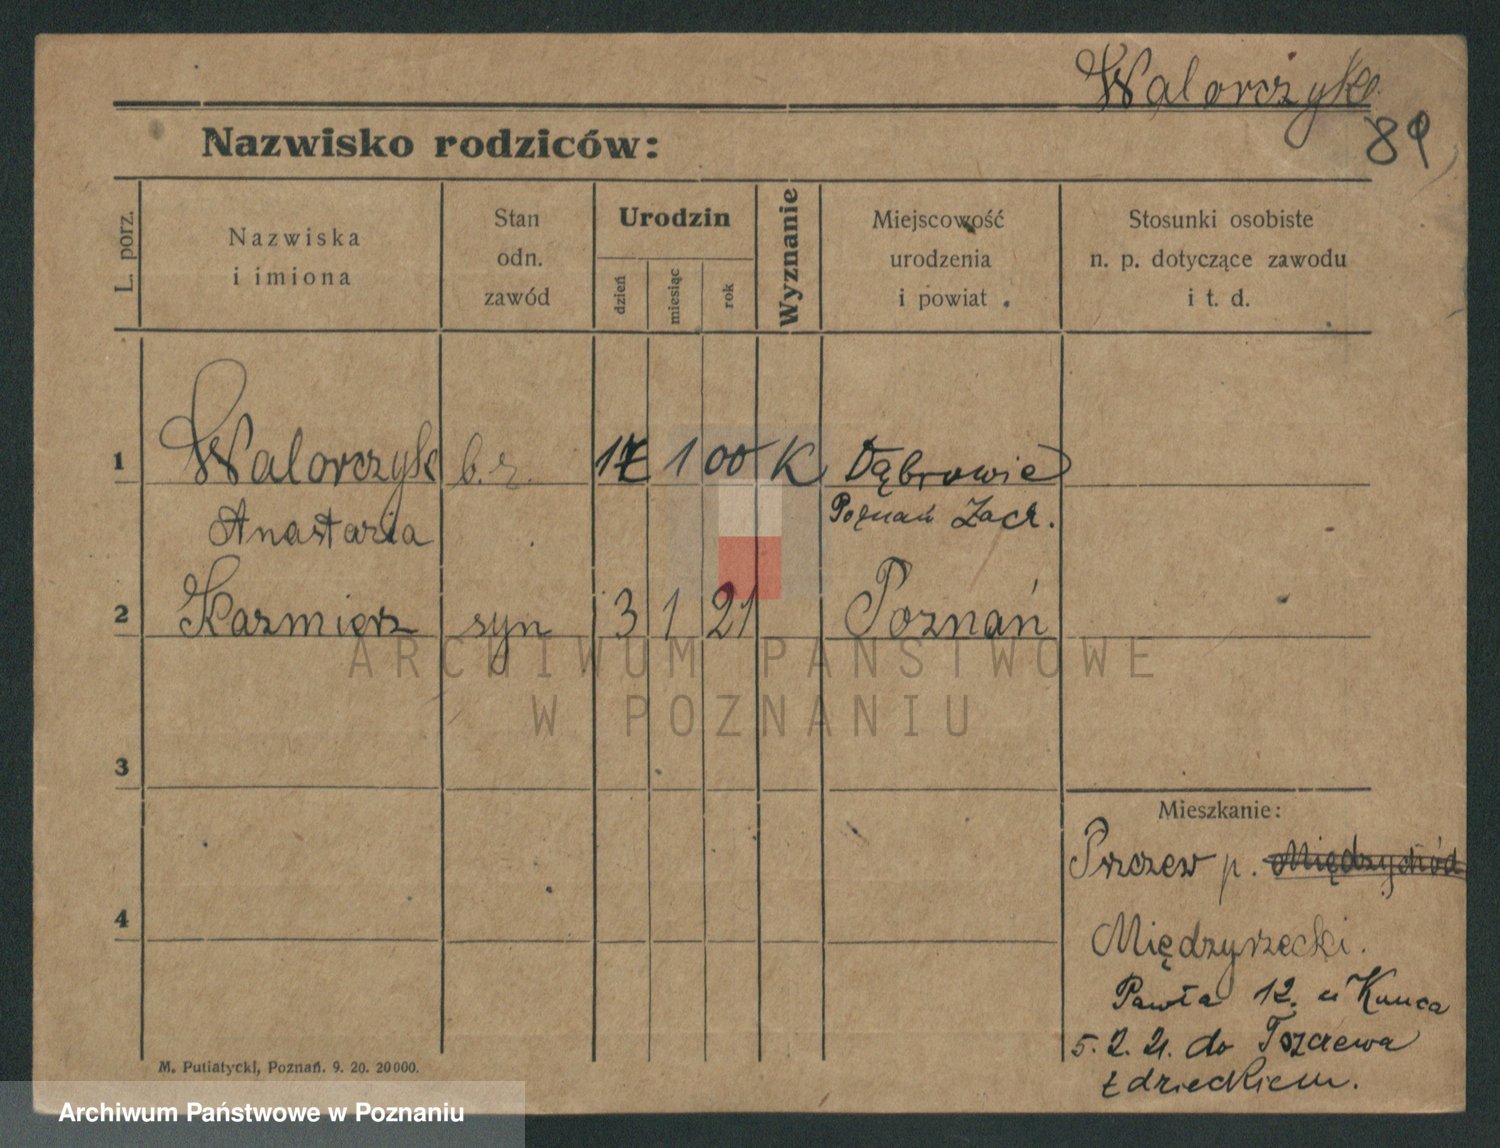 Walorczyk
89
Nazwisko rodziców:
L. porz.
Nazwiska
i imiona
Stan
odn.
zawód
Urodzin
dzień
miesiąc
rok
Wyznanie
Miejscowość
urodzenia
i powiat
Stosunki osobiste
n. p. dotyczące zawodu
i t. d.
1 Walorczyk b. z. 17 1 00 K Dąbrowie
Anastazia Poznań Zach.
2 Kazmierz syn 3 1 21 Poznań
ARCHIWUM PAŃSTWOWE
W POZNANIU
3
Mieszkanie:
Prczew p. Międzychód
4
Międzyrzecki.
Pawła 12. u Kunca
5. 2. 21. do
z dzieckiem.
M. Putiatycki, Poznań. 9. 20. 20000.
Archiwum Państwowe w Poznaniu